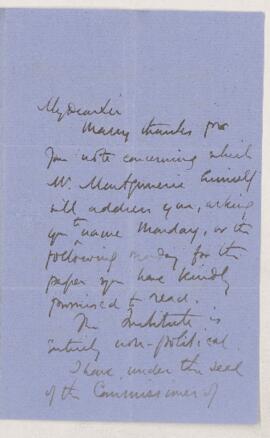 My Dear Sir
Many thanks for
your note concerning which
Mr. Montgomerie himself
will address you, asking
you to name Monday, or the
following Monday for the
paper you have kindly
promised to read.
The Institute is
entirely non-political
I have under the seal
of the Commissioner of